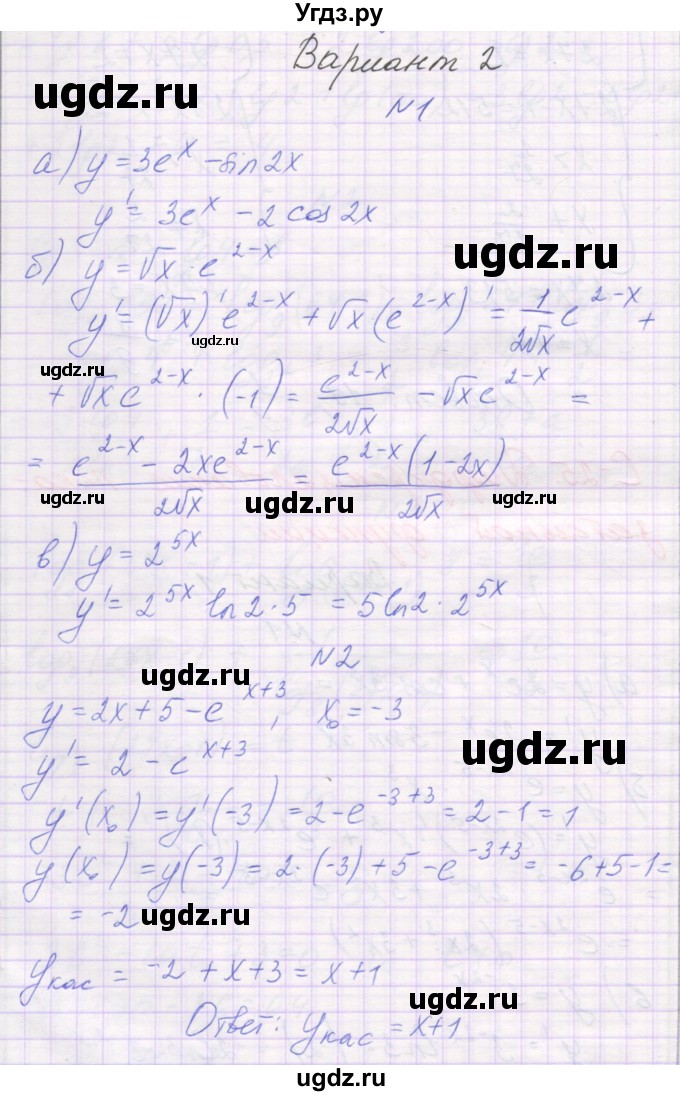 Угдз.ру
Вариант 2
ugdz.ru
N1
а) y = 3e^x - sin2x
y' = 3e^x - 2 cos 2x
ugdz.ru
б) y = √x · e^{2-x}
y' = (√x)' e^{2-x} + √x (e^{2-x})' = 1/(2√x) e^{2-x} +
ugdz.ru
ugdz.ru
+ √x e^{2-x} · (-1) = e^{2-x}/(2√x) - √x e^{2-x} =
= (e^{2-x} - 2xe^{2-x})/(2√x) = e^{2-x}(1-2x)/(2√x)
ugdz.ru
ugdz.ru
в) y = 2^{5x}
y' = 2^{5x} ln2 · 5 = 5ln2 · 2^{5x}
N2
ugdz.ru
y = 2x + 5 - e^{x+3}, x₀ = -3
ugdz.ru
y' = 2 - e^{x+3}
y'(x₀) = y'(-3) = 2 - e^{-3+3} = 2 - 1 = 1
y(x₀) = y(-3) = 2 · (-3) + 5 - e^{-3+3} = -6+5-1=
= -2
ugdz.ru
yкас = -2 + x + 3 = x + 1
ugdz.ru
Ответ: yкас = x+1
ugdz.ru